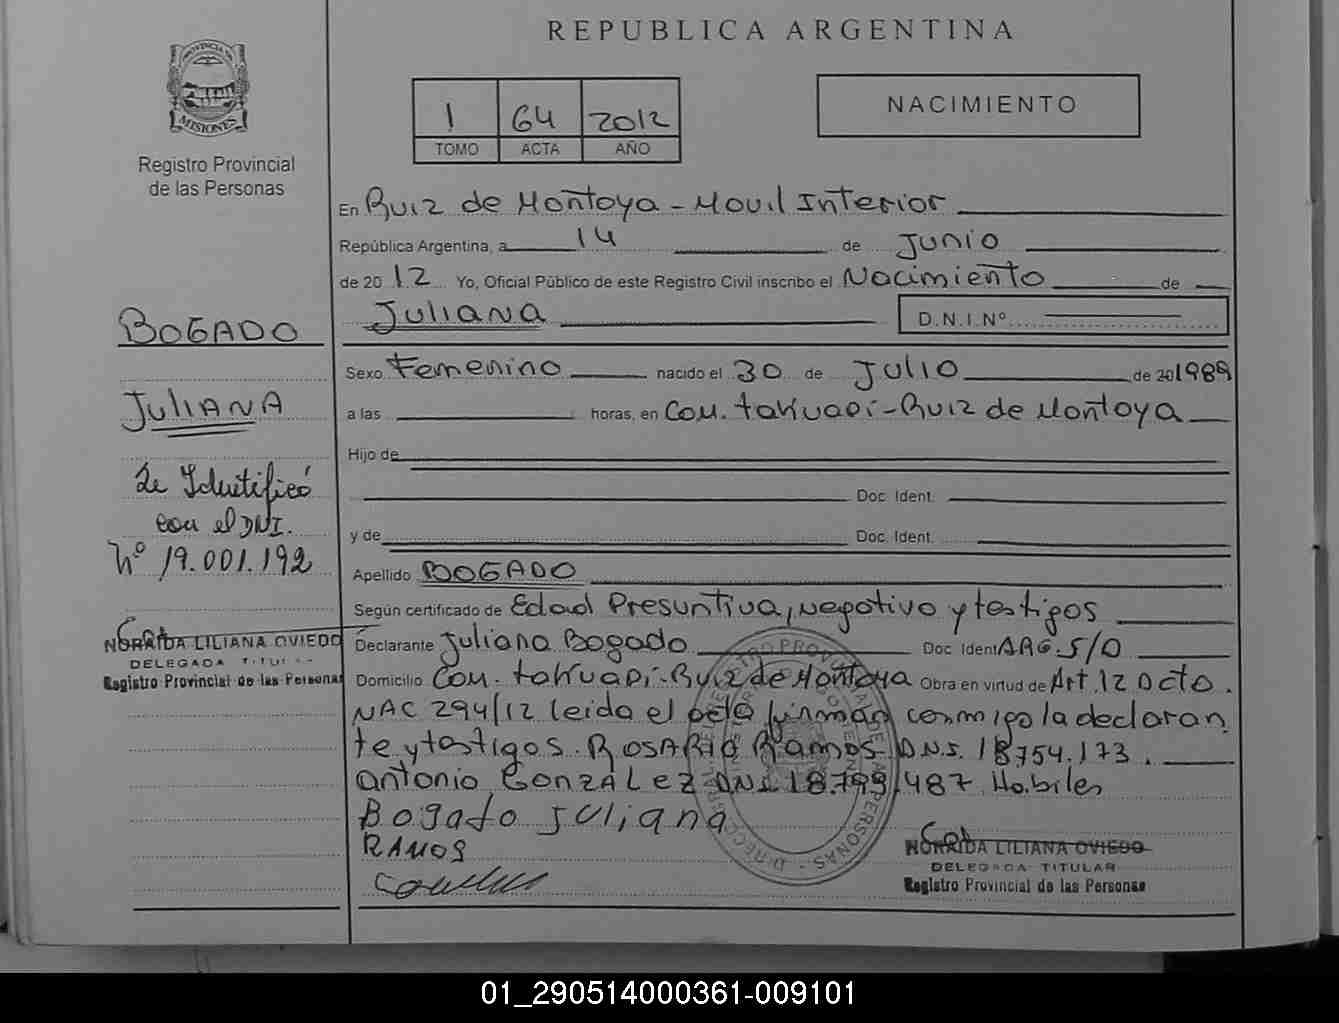 REPUBLICA ARGENTINA
PROVINCIA DE
MISIONES
Registro Provincial
de las Personas
1 64 2012
TOMO ACTA AÑO
NACIMIENTO
En Ruiz de Montoya - Movil Interior
República Argentina, a 14 de Junio
de 2012 Yo, Oficial Público de este Registro Civil inscribo el Nacimiento de
Juliana
D.N.I.Nº
BOGADO
JULIANA
Se Identificó
con el DNI.
Nº 19.001.192
NORAIDA LILIANA OVIEDO
DELEGADA TITULAR
Registro Provincial de las Personas
Sexo Femenino nacido el 30 de Julio de 201989
a las horas, en Com. takuapí - Ruiz de Montoya
Hijo de
Doc. Ident.
y de Doc. Ident.
Apellido BOGADO
Según certificado de Edad Presuntiva, negativo y testigos
Declarante Juliana Bogado Doc. Ident ARG. S/D
Domicilio Com. takuapí - Ruiz de Montoya Obra en virtud de Art. 12 Dcto.
NAC 294/12 leida el acta firman conmigo la declaran
te y testigos. ROSARIO RAMOS D.N.I. 18754.173.
Antonio GONZALEZ DNI 18.799.487 Habiles
Bogado Juliana
RAMOS
NORAIDA LILIANA OVIEDO
DELEGADA TITULAR
Registro Provincial de las Personas
01_290514000361-009101